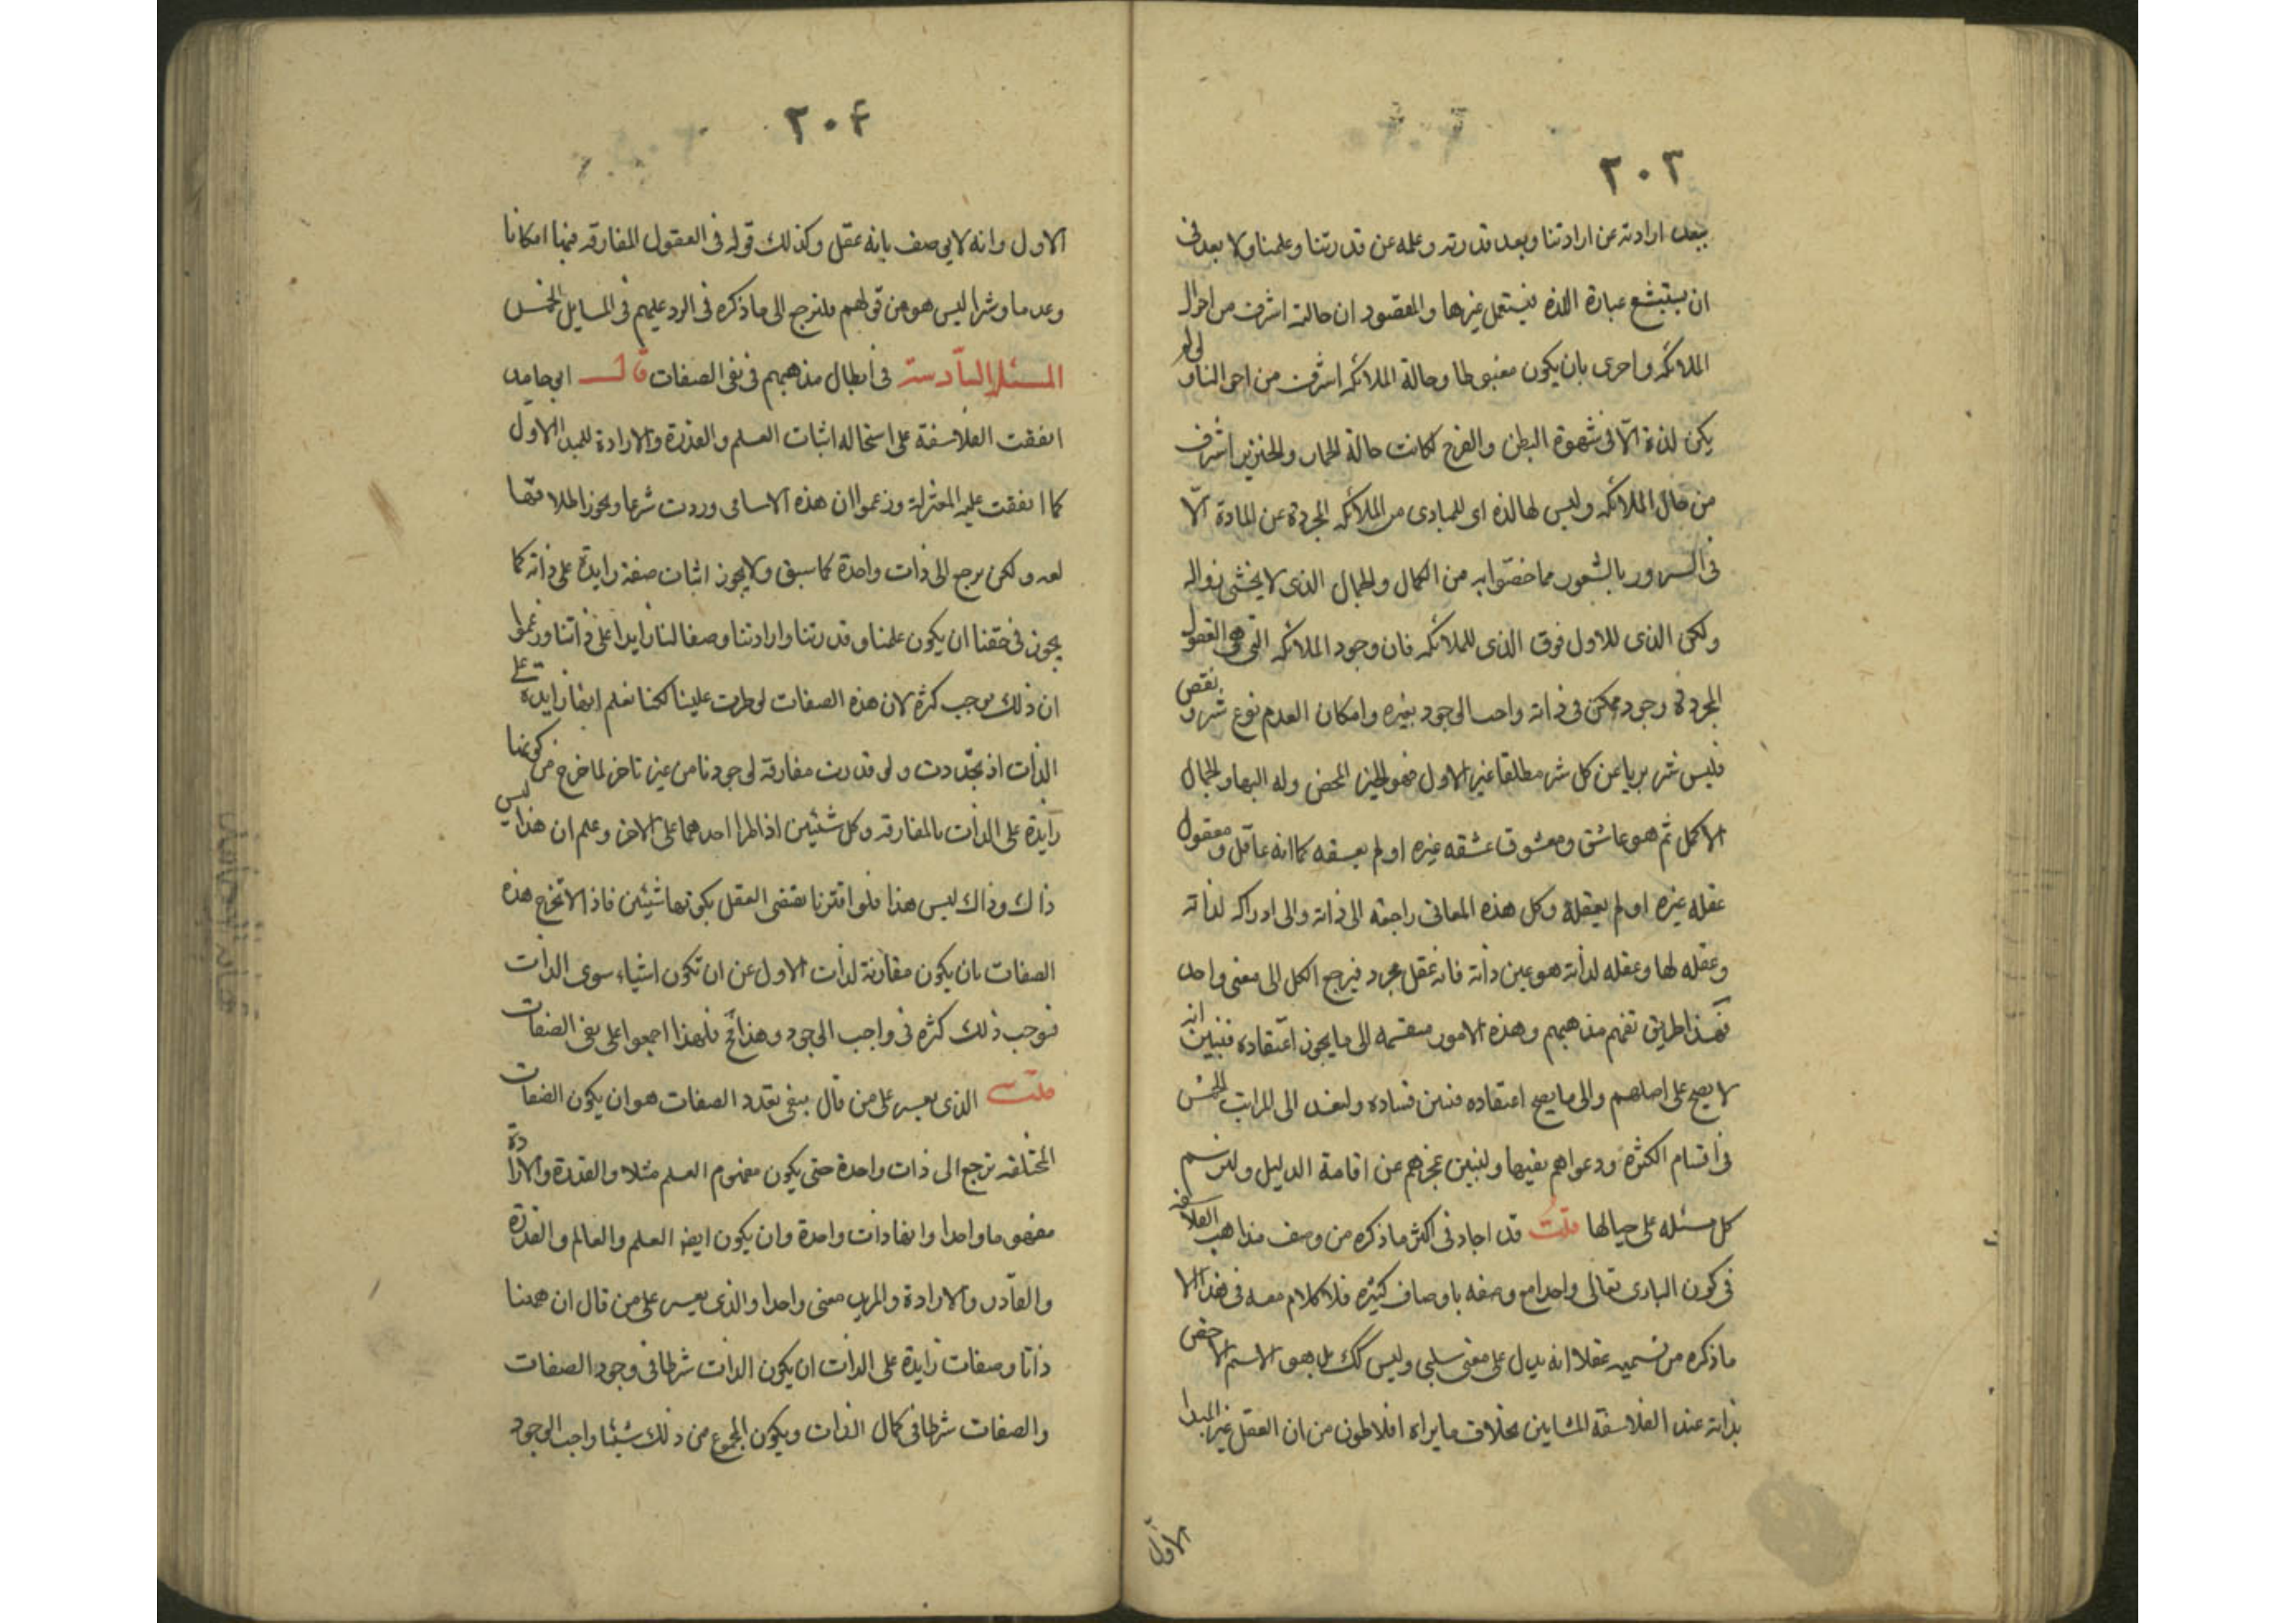 ٢٠٣
ببعد ارادته عن ارادتنا وبعد قدرته وعلمه عن قدرتنا وعلمنا ولا بعد فى
ان يستبشع عبارة اللذه فيستعمل غيرها والمقصود ان حالته اشرف من احوال
الملائكه واحرى بان يكون مغبوطا وحالة الملائكه اشرف من احوالنا ولو لم
يكن لذة الّا فى شهوة البطن والفرج لكانت حالة الحمار والخنزير اشرف
من حال الملائكه وليس لها لذه اى للمبادى من الملائكه المجردة عن المادة الّا
فى السرور بالشعور مما خصّوا به من الكمال والجمال الذى لا يخشى زواله
ولكن الذى للاول فوق الذى للملائكه فان وجود الملائكه التى هى العقول
المجردة وجود ممكن فى ذاته واجب الوجود بغيره وامكان العدم نوع شر ونقص
فليس شر بريا عن كل شر مطلقا غير الاول فهو الخير المحض وله البهاء والجمال
الاكمل ثم هو عاشق ومعشوق عشقه غيره او لم يعشقه كما انه عاقل ومعقول
عقله غيره او لم يعقله وكل هذه المعانى راجعه الى ذاته والى ادراكه لذاته
وعقله لها وعقله لذاته هو عين ذاته فانه عقل مجرد فيرجع الكل الى معنى واحد
فهذا طريق تفهم مذهبهم وهذه الامور منقسمه الى ما يجوز اعتقاده فنبين انه
لا يصح على اصلهم والى ما يصح اعتقاده فنبين فساده ولنعد الى المراتب الخمس
فى اقسام الكثره ودعواهم نفيها ولنبين عجزهم عن اقامة الدليل ولنرسم
كل مسئله على حيالها قلتُ قد اجاد فى اكثر ما ذكره من وصف مذاهب الفلاسفه
فى كون البارى تعالى واحدا مع وصفه باوصاف كثيره فلا كلام معه فى هذا الا
ما ذكره من تسميه عقلا انه يدل على معنى سلبى وليس كك بل هو الاسم الاخص
بذاته عند الفلاسفة المشايين بخلاف ما يراه افلاطون من ان العقل غير المبدا
الاول
٢٠٤
الاول وانه لا يوصف بانه عقل وكذلك قوله فى العقول المفارقه فيها امكانا
وعدما وشرا ليس هو من قولهم فلنرجع الى ما ذكره فى الرد عليهم فى المسايل الخمس
المسئلة السادسة فى ابطال مذهبهم فى نفى الصفات قال ابو حامد
اتفقت الفلاسفة على استحاله اثبات العلم والقدرة والارادة للمبدا الاول
كما اتفقت عليه المعتزلة وزعموا ان هذه الاسامى وردت شرعا ويجوز اطلاقها
لغه ولكن يرجع الى ذات واحدة كما سبق ولا يجوز اثبات صفة زايدة على ذاته كما
يجوز فى حقنا ان يكون علمنا وقدرتنا وارادتنا وصفا لنا زايدا على ذاتنا وزعموا
ان ذلك يوجب كثرة لان هذه الصفات لو طرت علينا لكنا نعلم انها زايدة على
الذات اذ تجددت ولو قدرت مقارنة لوجودنا من غير تاخر لما خرج من كونها
زايدة على الذات بالمفارقه وكل شئيين اذا طرا احدهما على الاخر وعلم ان هذا ليس
ذاك وذاك ليس هذا فلو اقترنا يقضى العقل بكونهما شيئين فاذا لا تخرج هذه
الصفات بان يكون مقارنة لذات الاول عن ان تكون اشياء سوى الذات
فوجب ذلك كثره فى واجب الوجود وهذا مح فلهذا اجمعوا على نفى الصفات
قلت الذى يعسر على من قال ينفى تعدد الصفات هو ان يكون الصفات
المختلفه ترجع الى ذات واحدة حتى يكون مفهوم العلم مثلا والقدرة والارادة
مفهوما واحدا وانها ذات واحدة وان يكون ايضا العلم والعالم والقدرة
والقادر والارادة والمريد معنى واحدا والذى يعسر على من قال ان ههنا
ذاتا وصفات زايدة على الذات ان يكون الذات شرطا فى وجود الصفات
والصفات شرطا فى كمال الذات ويكون المجموع من ذلك شيئا واجب الوجود